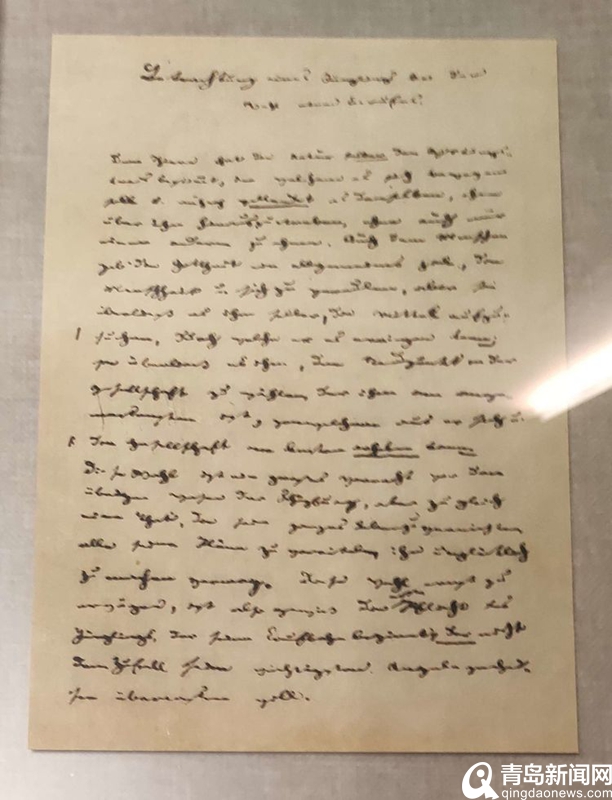 Betrachtung eines Jünglings bei der
Wahl eines Berufes
hat die Natur selber den
welchem es sich bewegen
soll u. ruhig vollendet es denselben, ohne
über ihn hinauszustreben, ohne auch nur
einen anderen zu ahnen. Auch dem Menschen
gab die Gottheit ein allgemeines Ziel, die
Menschheit u. sich zu veredlen, aber sie
es ihm selber, die Mittel aufzu-
suchen, durch welche er es erringen kann;
sie es ihm, den in der
Gesellschaft zu wählen, der ihm am
ist, von welchem aus er sich u.
die Gesellschaft am besten erheben kann.
Diese Wahl ist ein Vorrecht vor den
übrigen Wesen der Schöpfung, aber zugleich
eine That, die sein ganzes Leben zu vernichten,
alle seine Pläne zu vereiteln, ihn unglücklich
zu machen vermag. Diese Wahl ernst zu
erwägen, ist also die Pflicht des
Jünglings, der seine Laufbahn beginnt, der nicht
dem Zufall seine wichtigsten Angelegenhei-
ten überlassen will.
青岛新闻网
qingdaonews.com